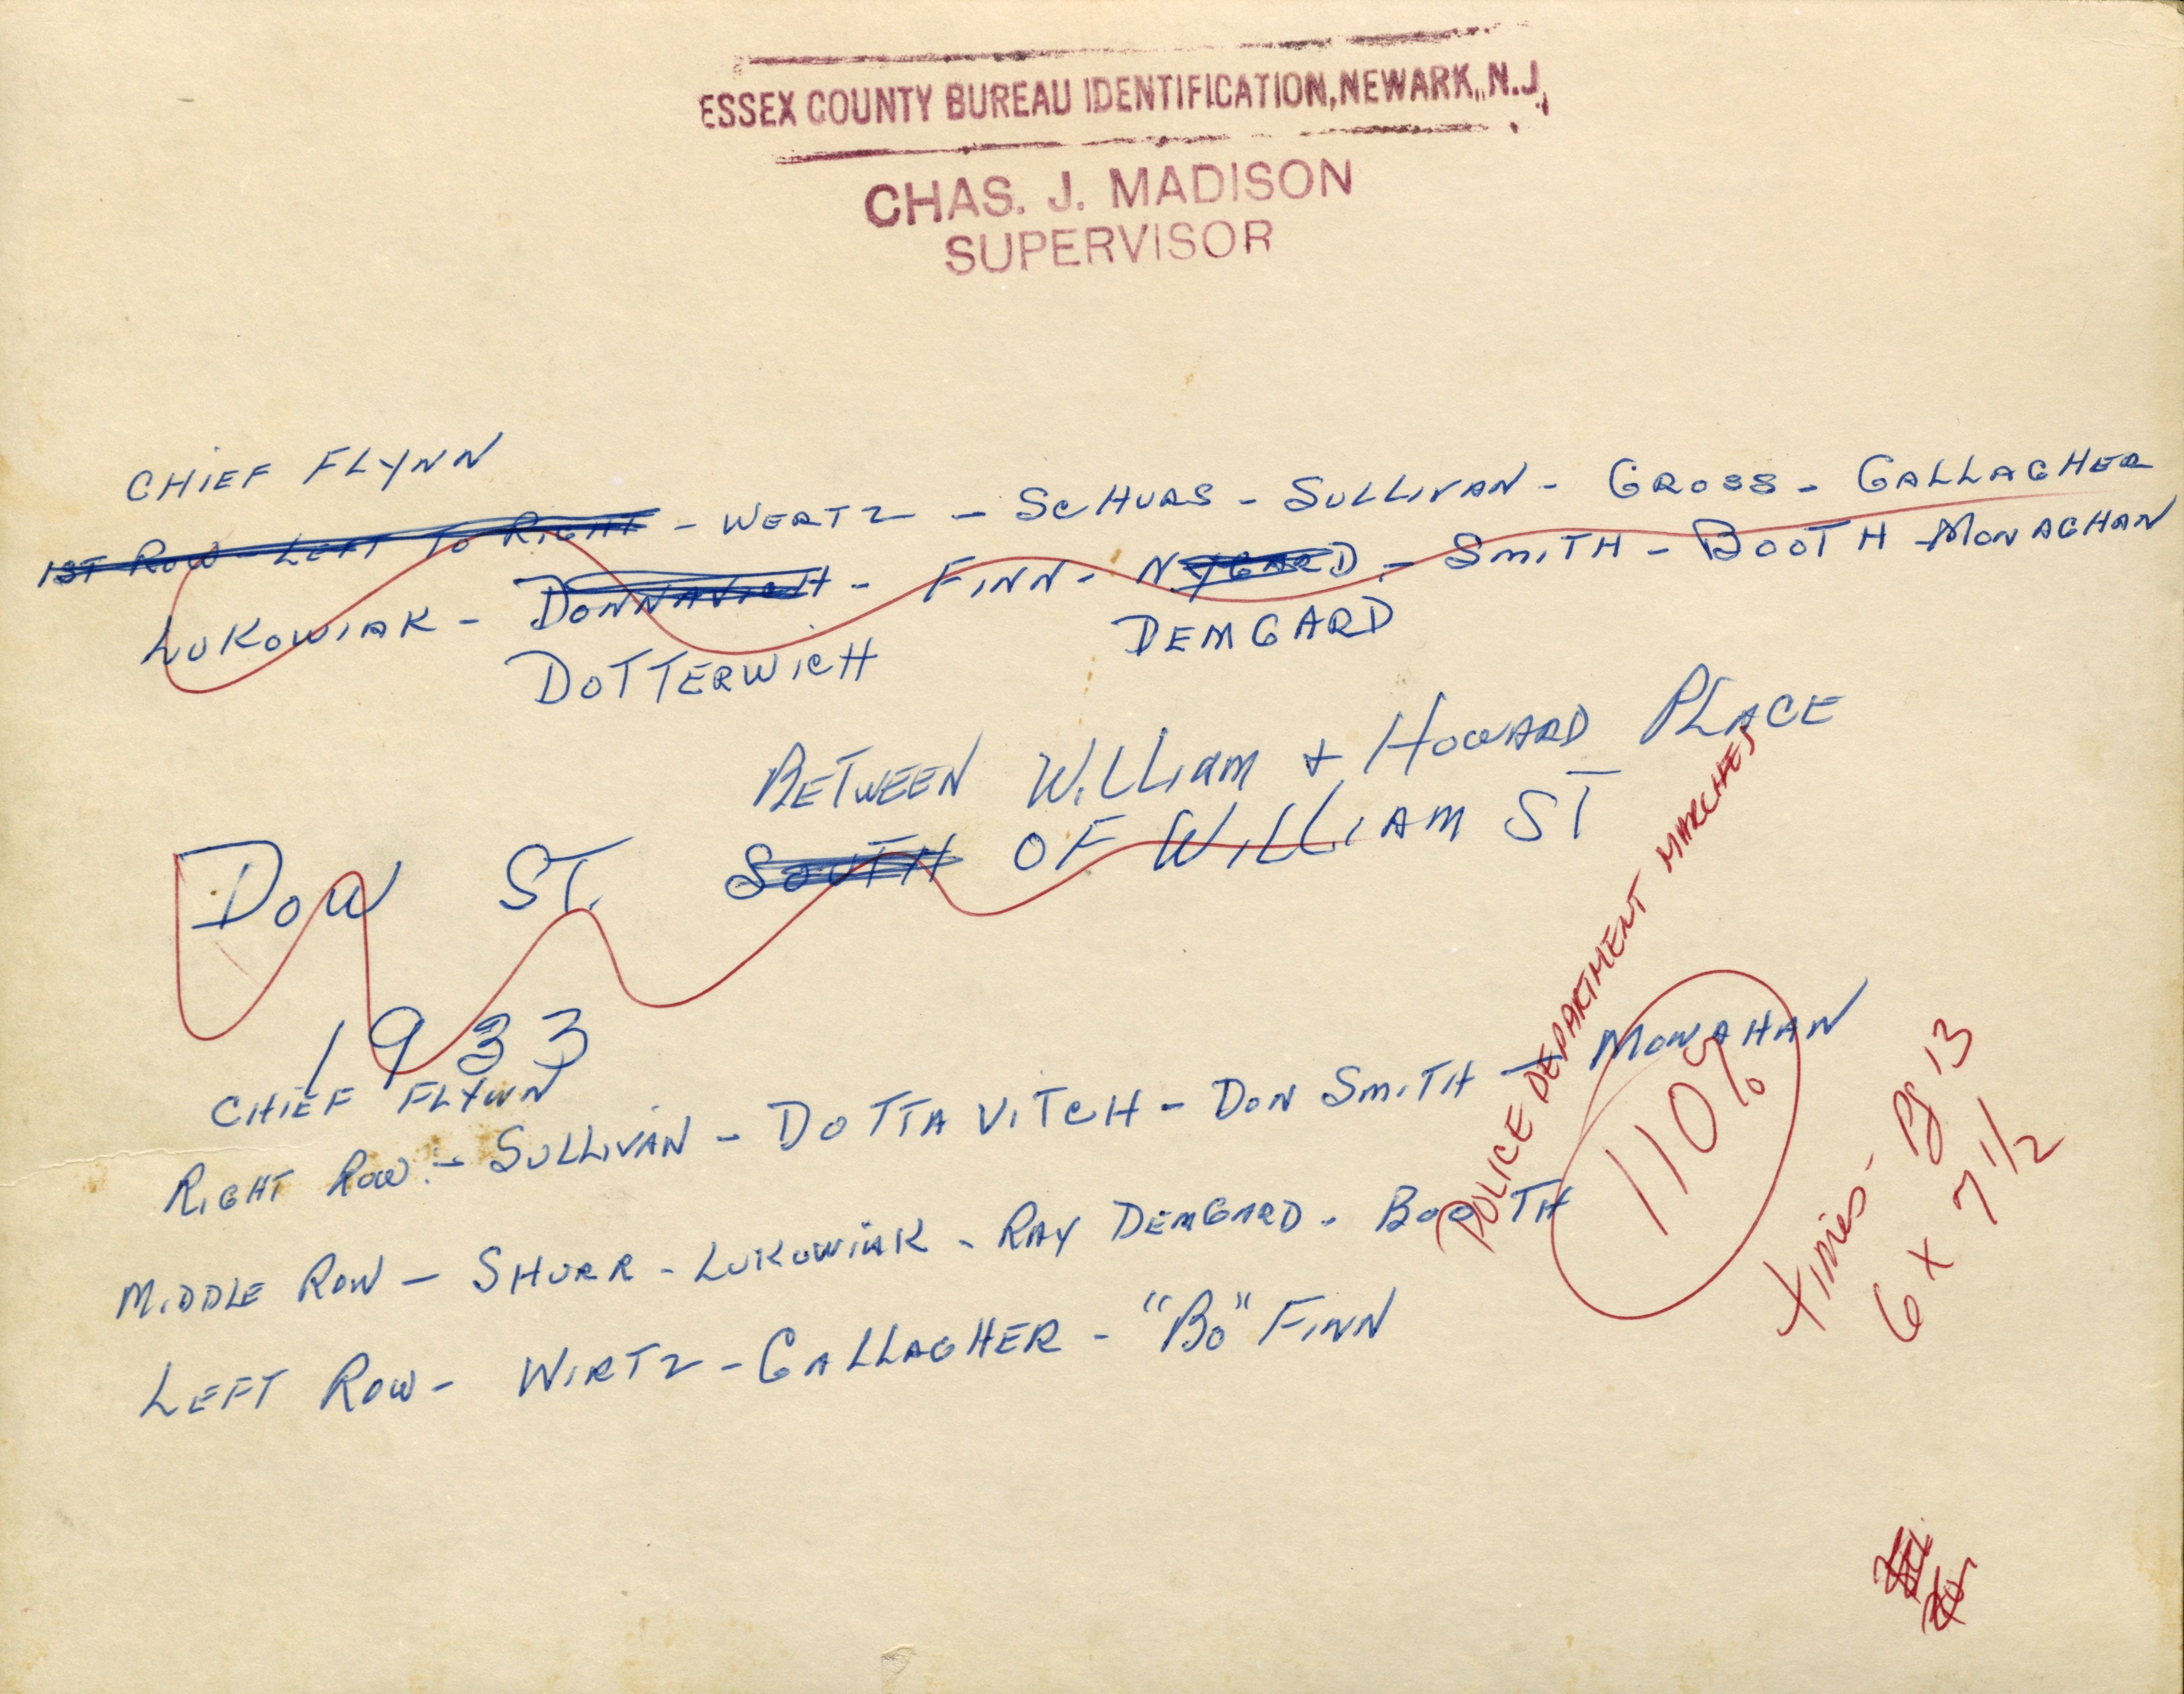 ESSEX COUNTY BUREAU IDENTIFICATION, NEWARK, N.J.
CHAS. J. MADISON
SUPERVISOR
CHIEF FLYNN
1ST ROW - LEFT TO RIGHT - WERTZ - SCHURS - SULLIVAN - GROSS - GALLAGHER
LUKOWIAK - DONNAVICH - FINN - NYGARD - SMITH - BOOTH - MONAGHAN
DOTTERWICH DEMGARD
BETWEEN WILLIAM + HOWARD PLACE
DOW ST. SOUTH OF WILLIAM ST
1933
CHIEF FLYNN
RIGHT ROW - SULLIVAN - DOTTAVITCH - DON SMITH - MONAHAN
MIDDLE ROW - SHURR - LUKOWIAK - RAY DEMGARD - BOOTH
LEFT ROW - WIRTZ - GALLAGHER - "BO" FINN
POLICE DEPARTMENT MARCHES
110%
Times - Pg 13
6 x 7 1/2